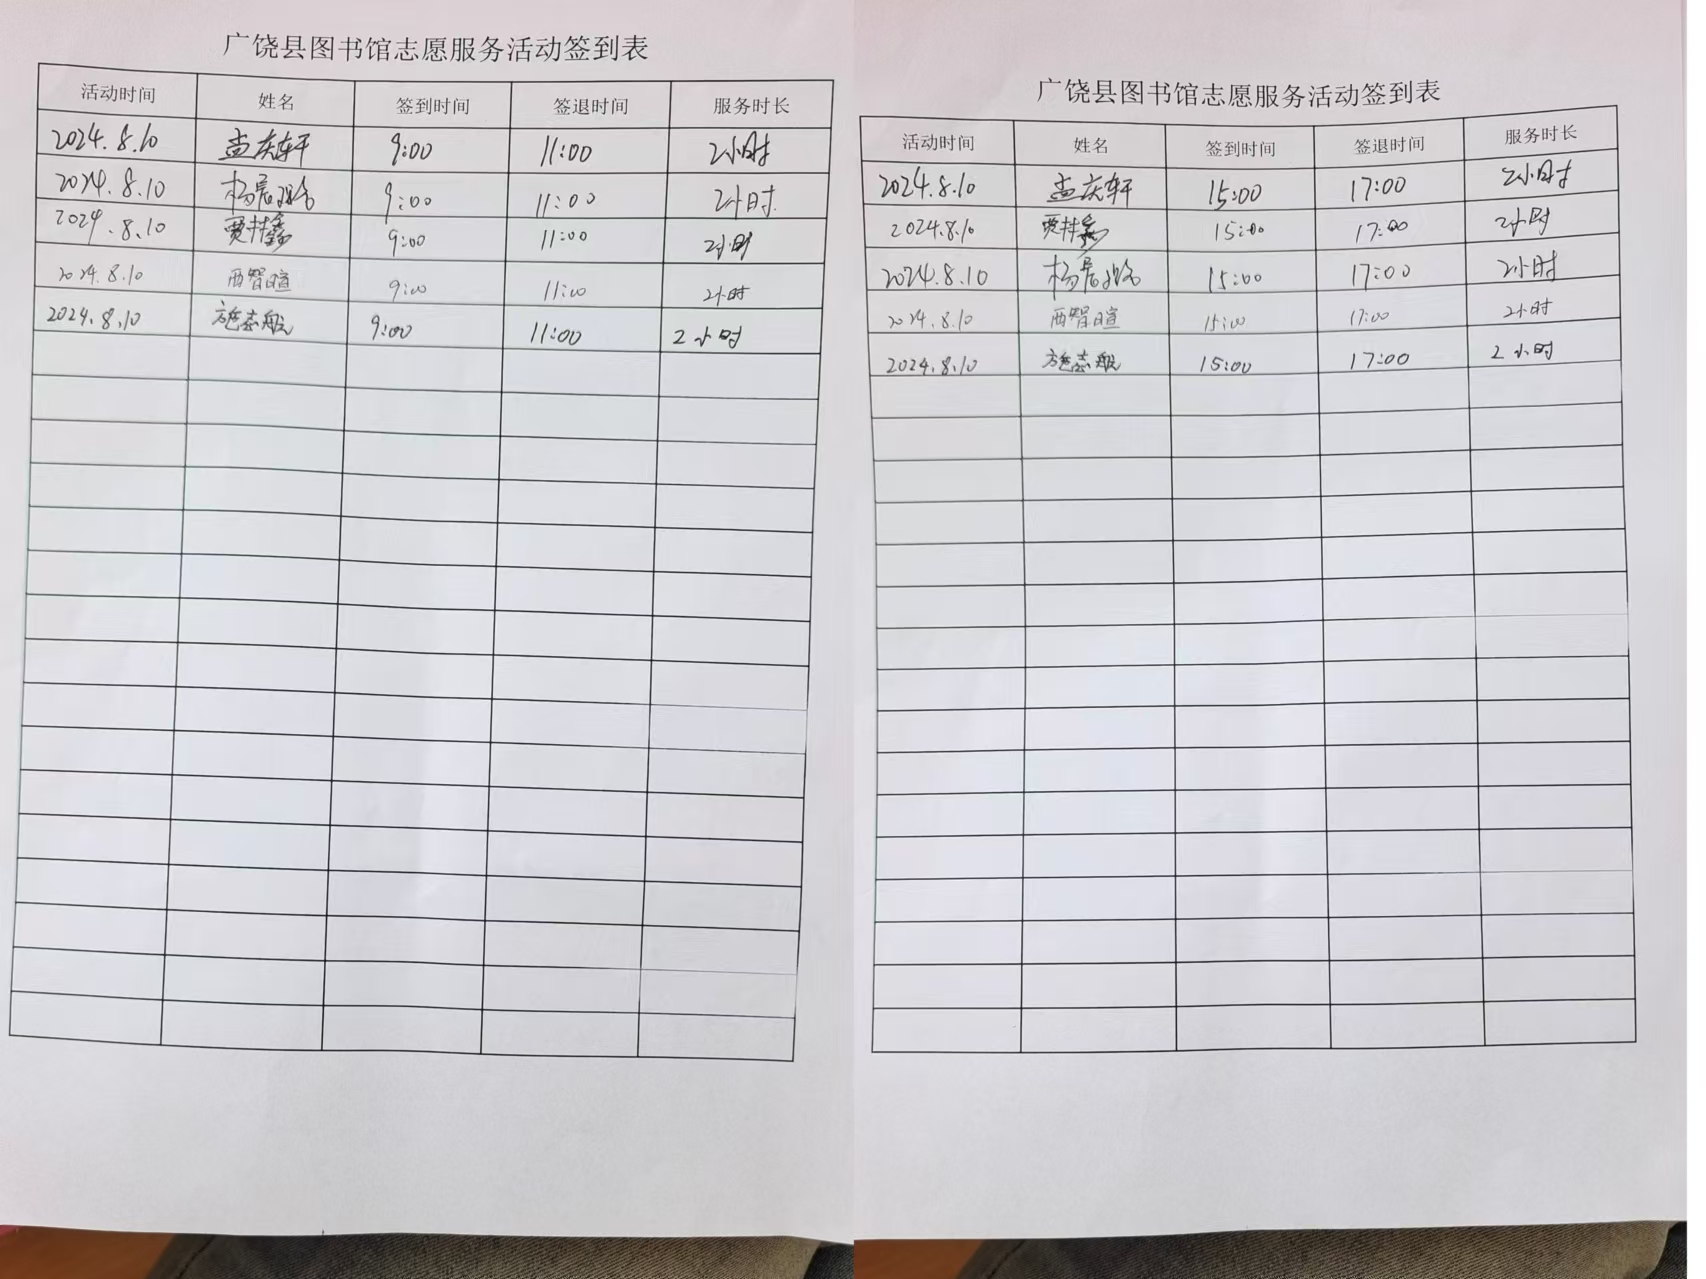 广饶县图书馆志愿服务活动签到表
活动时间 姓名 签到时间 签退时间 服务时长
2024.8.10 孟庆轩 9:00 11:00 2小时
2024.8.10 杨 9:00 11:00 2小时
2024.8.10 贾 鑫 9:00 11:00 2小时
2024.8.10 西智暄 9:00 11:00 2小时
2024.8.10 9:00 11:00 2小时
广饶县图书馆志愿服务活动签到表
活动时间 姓名 签到时间 签退时间 服务时长
2024.8.10 孟庆轩 15:00 17:00 2小时
2024.8.10 贾 鑫 15:00 17:00 2小时
2024.8.10 杨 15:00 17:00 2小时
2024.8.10 西智暄 15:00 17:00 2小时
2024.8.10 15:00 17:00 2小时